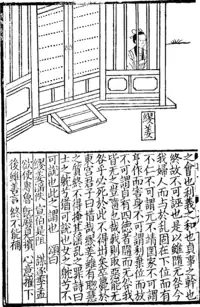 繆姜
之會也利義之和也貞事之幹也
終故不可誣也是以雖隨无咎今
我婦人而與於亂固在下位而有
不仁不可謂元不靖國家不可謂
亨作而害身不可謂利棄位而放
不可謂貞有四德者隨而无咎我
皆無之豈隨也哉我則取惡能无
咎乎必死於此不得出矣卒薨於
東宮君子曰惜哉繆姜雖有聰慧
之質終不得掩其淫亂之罪詩曰
士之耽兮猶可說也女之耽兮不
可說也此之謂也 頌曰
繆姜淫泆 宣伯是阻 謀逐季孟
欲使專魯 既廢見擯 心意摧下
後雖善言 終不能補